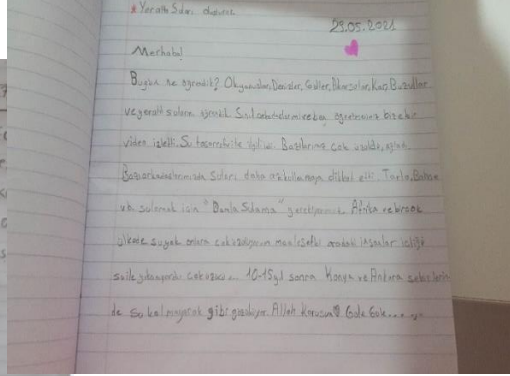 * Yeraltı Suları
29.05.2021
Merhaba!
Bugün ne öğrendik? Okyanuslar, Denizler, Göller, Akarsular, Kar, Buzullar
ve yeraltı sularını öğrendik. Sınıf
video izletti. Su tasarrufu ile ilgili. Bazılarımız çok üzüldü, ağladı.
Bazı arkadaşlarımızda Suları daha akıllı dikkat etti. Tarla, Bahçe
vb sulamak için "Damla Sulama" gerekiyormuş. Afrika ve birçok
ülkede su yok onlara çok üzülüyorum maalesefki oradaki insanlar içtiği
su ile çok üzücü... 10-15 yıl sonra Konya ve Ankara
de su kalmayacak gibi gözüküyor. Allah Korusun Güle Güle.....